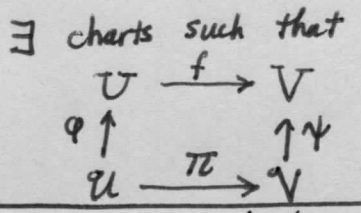 ∃ charts such that
f
U → V
φ ↑ ↑ ψ
π
𝒰 → 𝒱